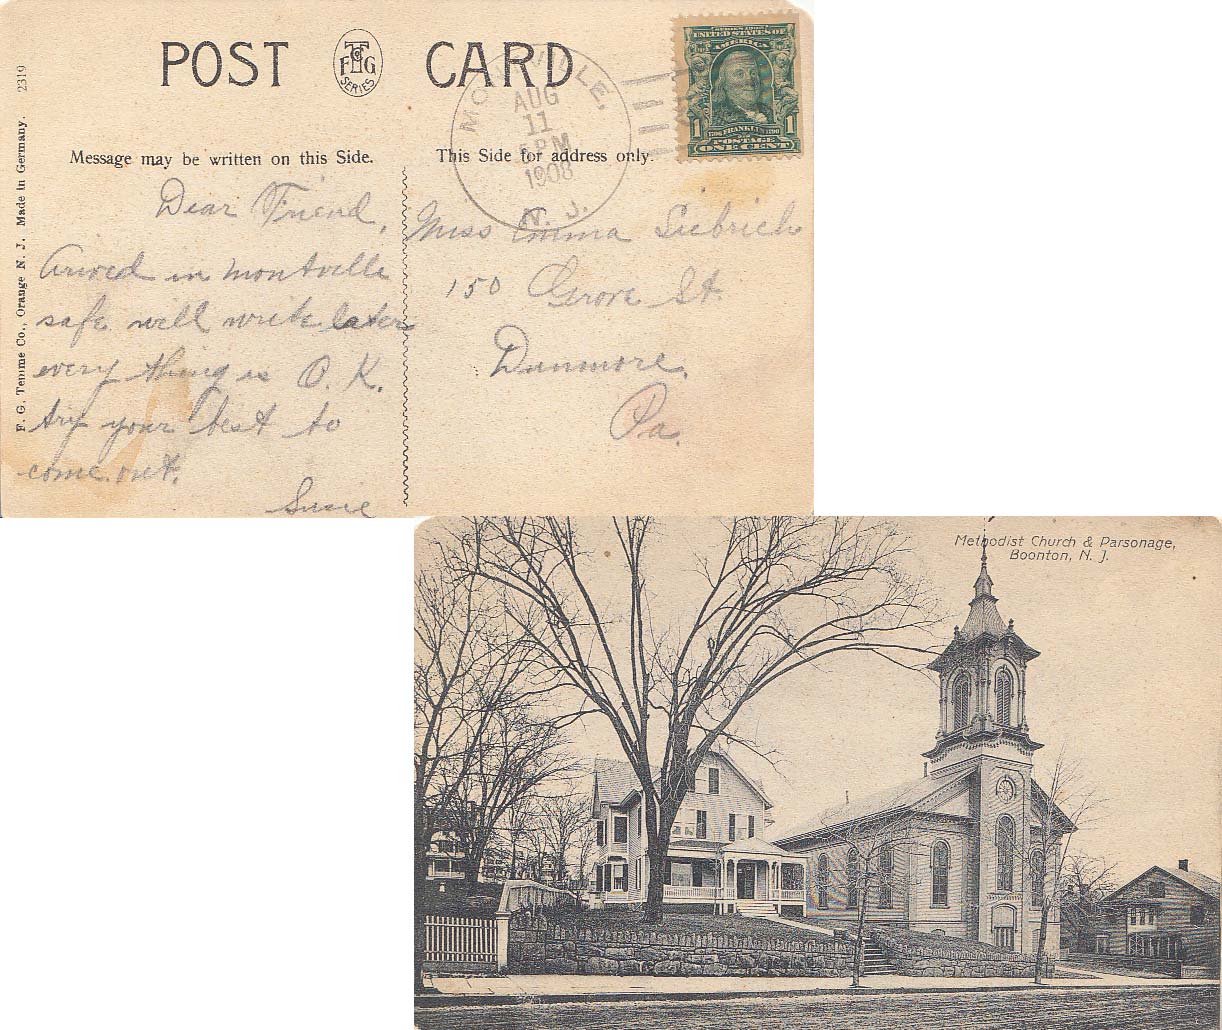 POST CARD
F T Co G
SERIES
MONTVILLE,
AUG
11
5 PM
1908
N. J.
UNITED STATES OF
AMERICA
1 1
1706 FRANKLIN 1790
POSTAGE
ONE CENT
F. G. Temme Co., Orange N. J. Made in Germany. 2319
Message may be written on this Side.
This Side for address only.
Dear Friend,
Arived in Montville
safe will write later
every thing is O. K.
try your best to
come out.
Susie
Miss Emma Siebrich
150 Grove St.
Dunmore,
Pa.
Methodist Church & Parsonage,
Boonton, N. J.